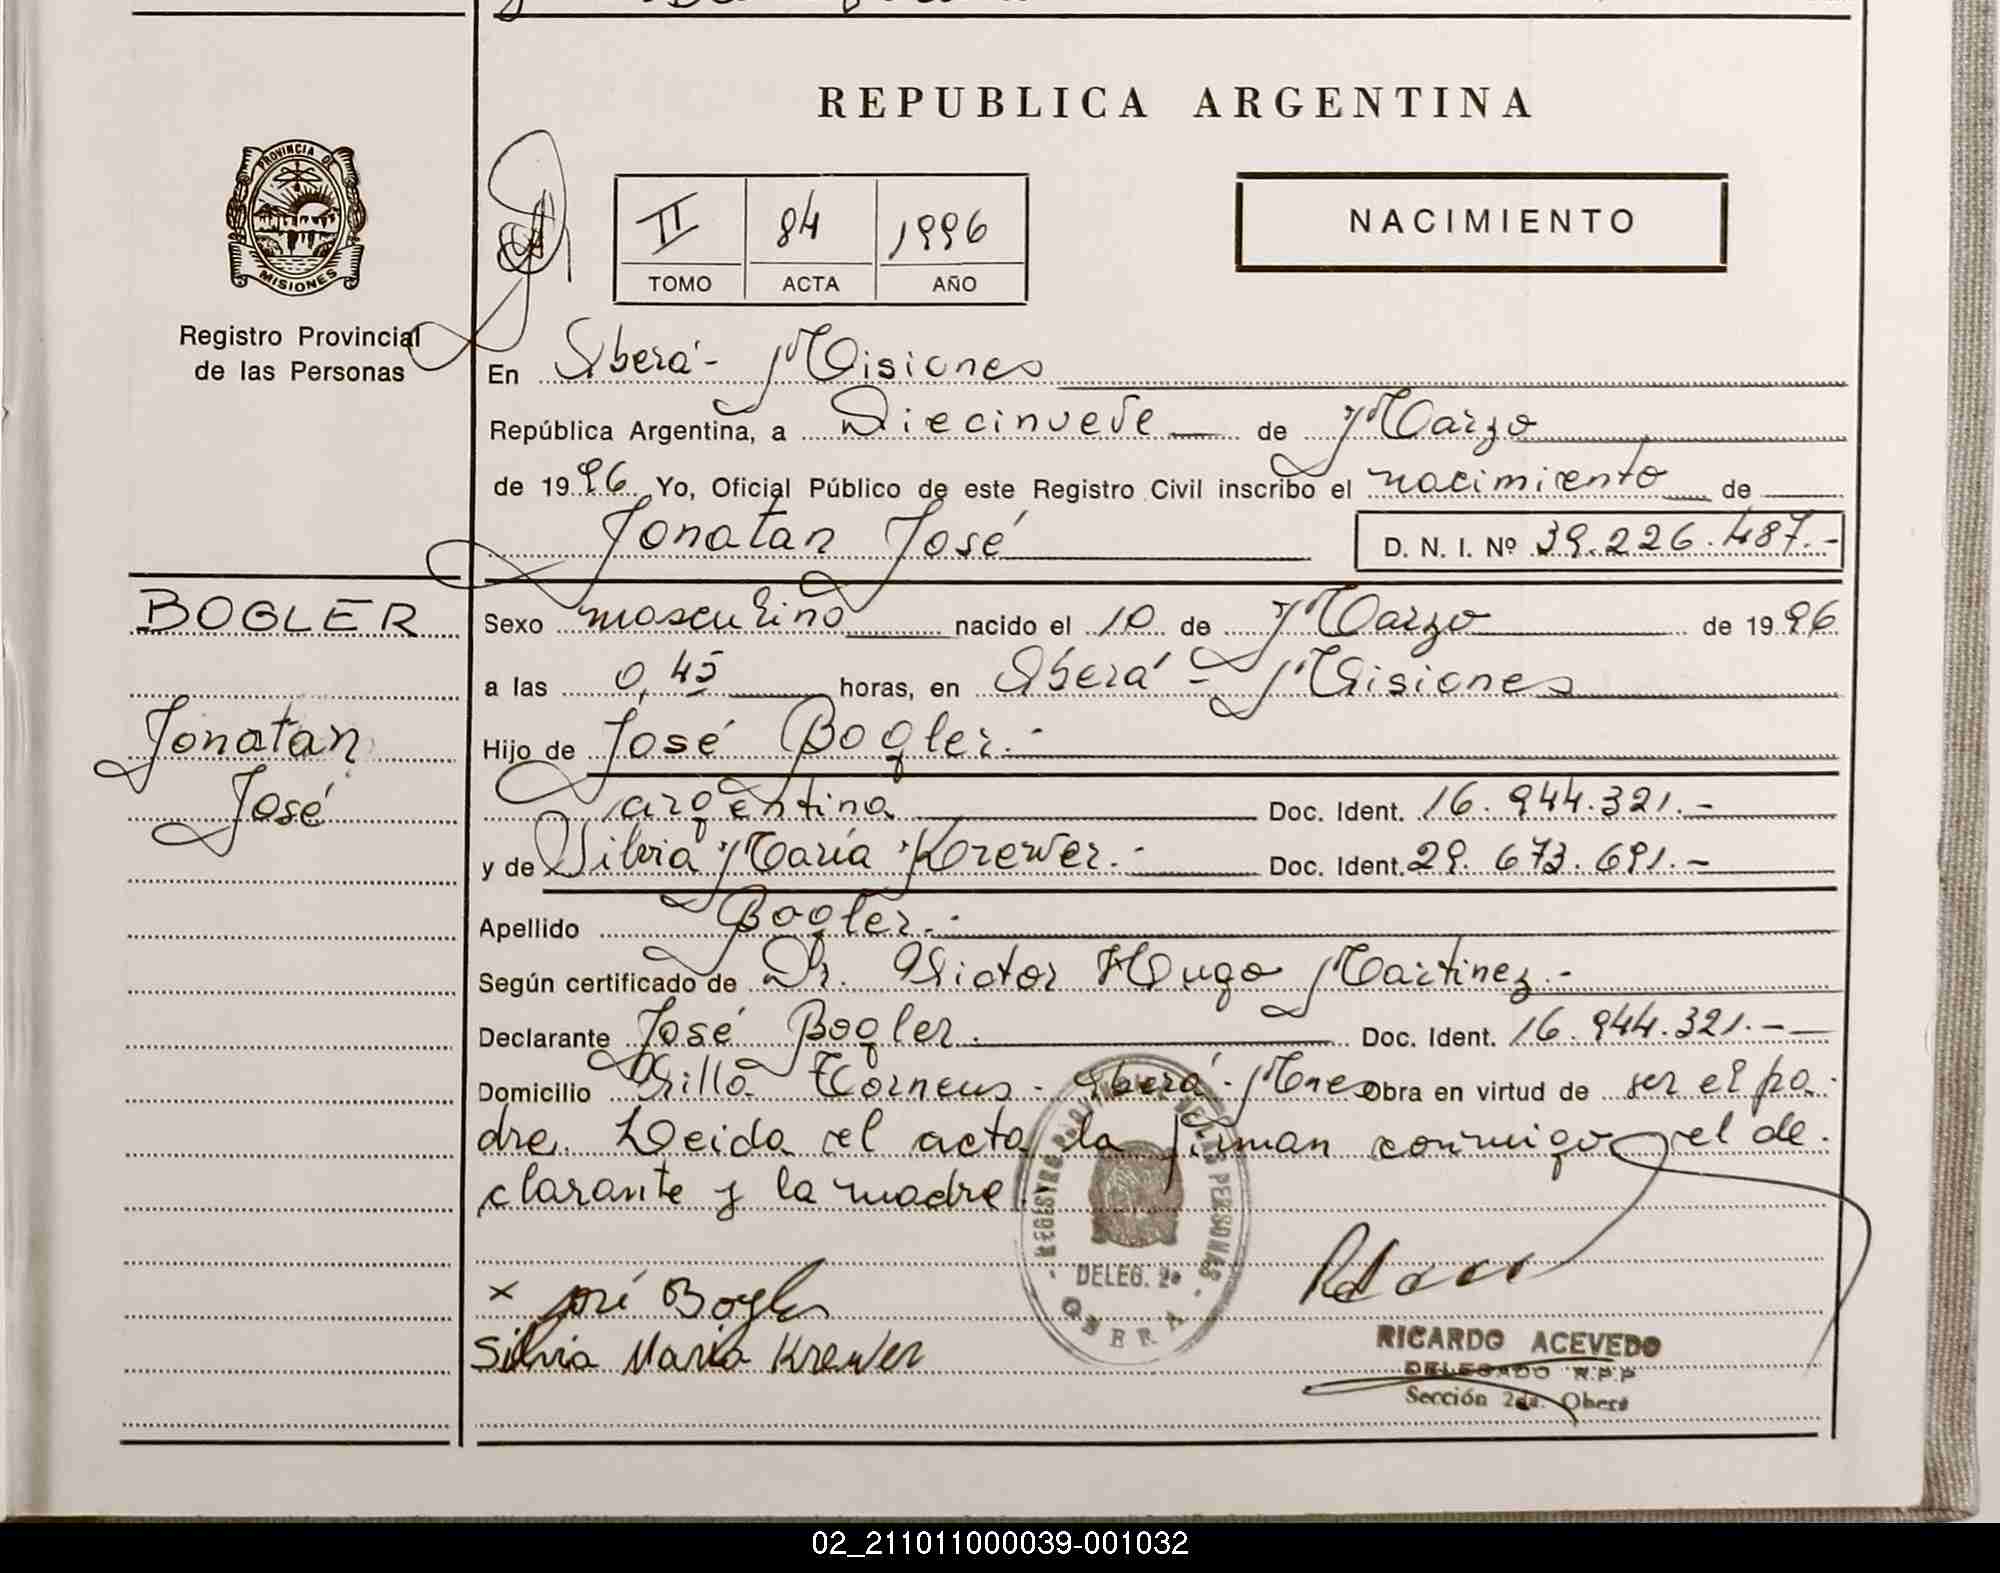 REPUBLICA ARGENTINA
PROVINCIA DE
MISIONES
Registro Provincial
de las Personas
II 84 1996
TOMO ACTA AÑO
NACIMIENTO
En Oberá - Misiones
República Argentina, a Diecinueve de Marzo
de 1996 Yo, Oficial Público de este Registro Civil inscribo el nacimiento de
Jonatan José D. N. I. Nº 39.226.487.-
BOGLER
Jonatan
José
Sexo masculino nacido el 10 de Marzo de 1996
a las 0,45 horas, en Oberá - Misiones
Hijo de José Bogler.-
argentina Doc. Ident. 16.944.321.-
y de Silvia María Krewer.- Doc. Ident. 29.673.691.-
Apellido Bogler.-
Según certificado de Dr. Victor Hugo Martinez.-
Declarante José Bogler. Doc. Ident. 16.944.321.-
Domicilio Villa Torneus - Oberá - Mnes Obra en virtud de ser el pa-
dre. Leida el acta la firman conmigo el de-
clarante y la madre.
REGISTRO PROVINCIAL DE LAS PERSONAS
DELEG. 2a
OBERA
x José Bogler
Silvia Maria Krewer
RICARDO ACEVEDO
DELEGADO R.P.P
Sección 2da. Oberá
02_211011000039-001032